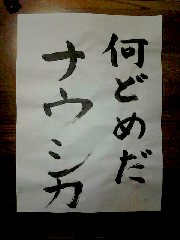 何どめだ
ナウシカ